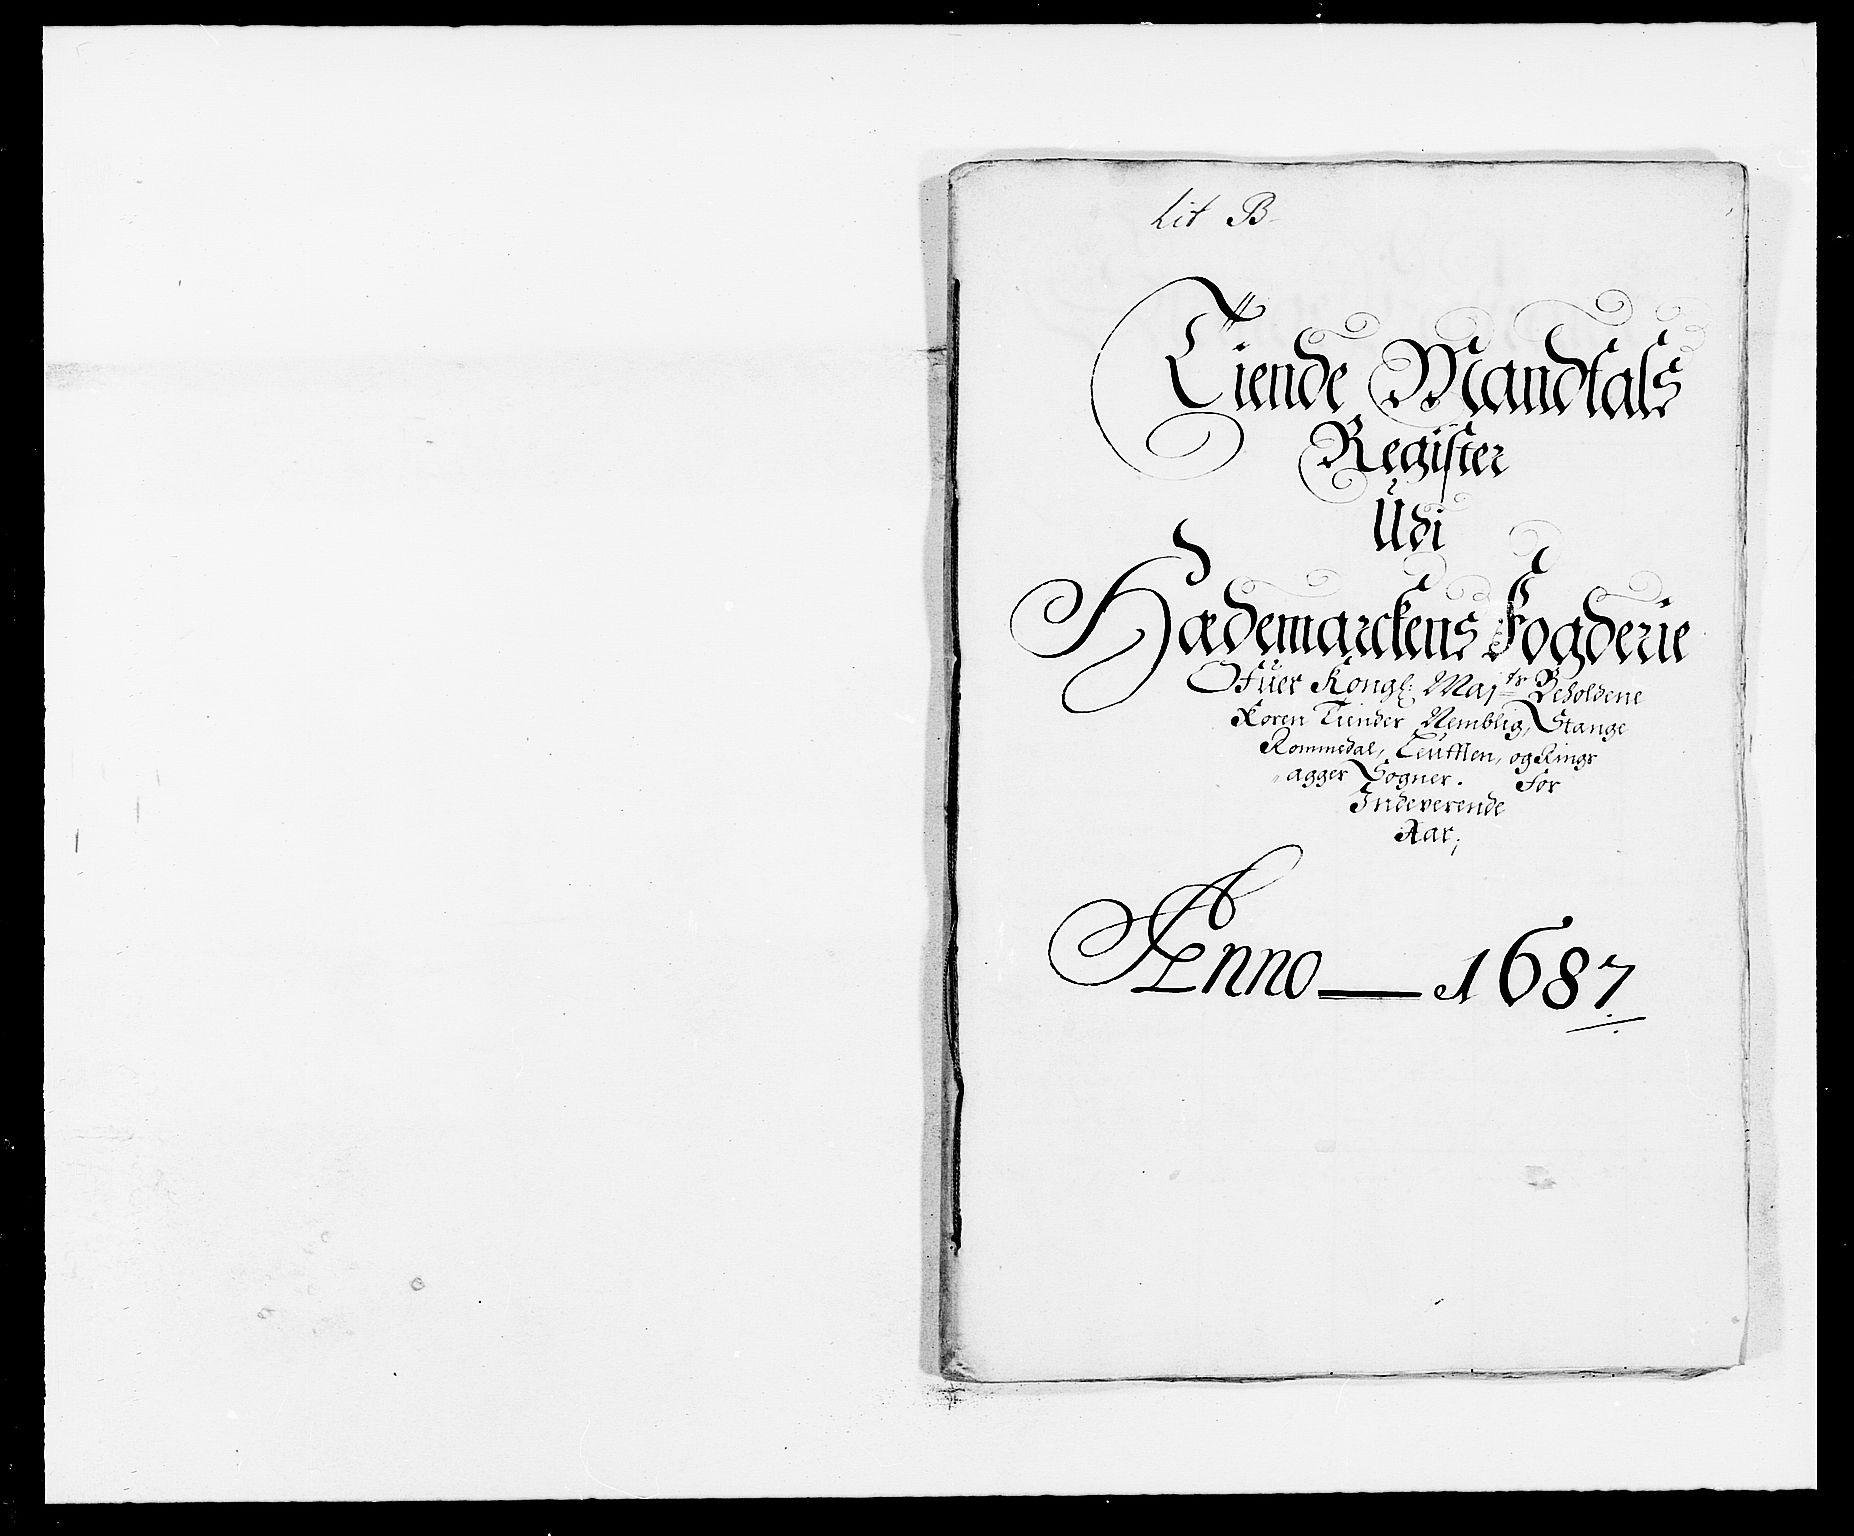 Lit B
Tiende Mandtals
Register
Udi
Hædemarckens Fogderie
Ofuer Kongl: Maj:ts Beholdene
Koren Tiender Nemblig, Stange
Rommedal, Leutten, og Rings
agger Sogner. For
Indeverende
Aar,
Anno — 1687